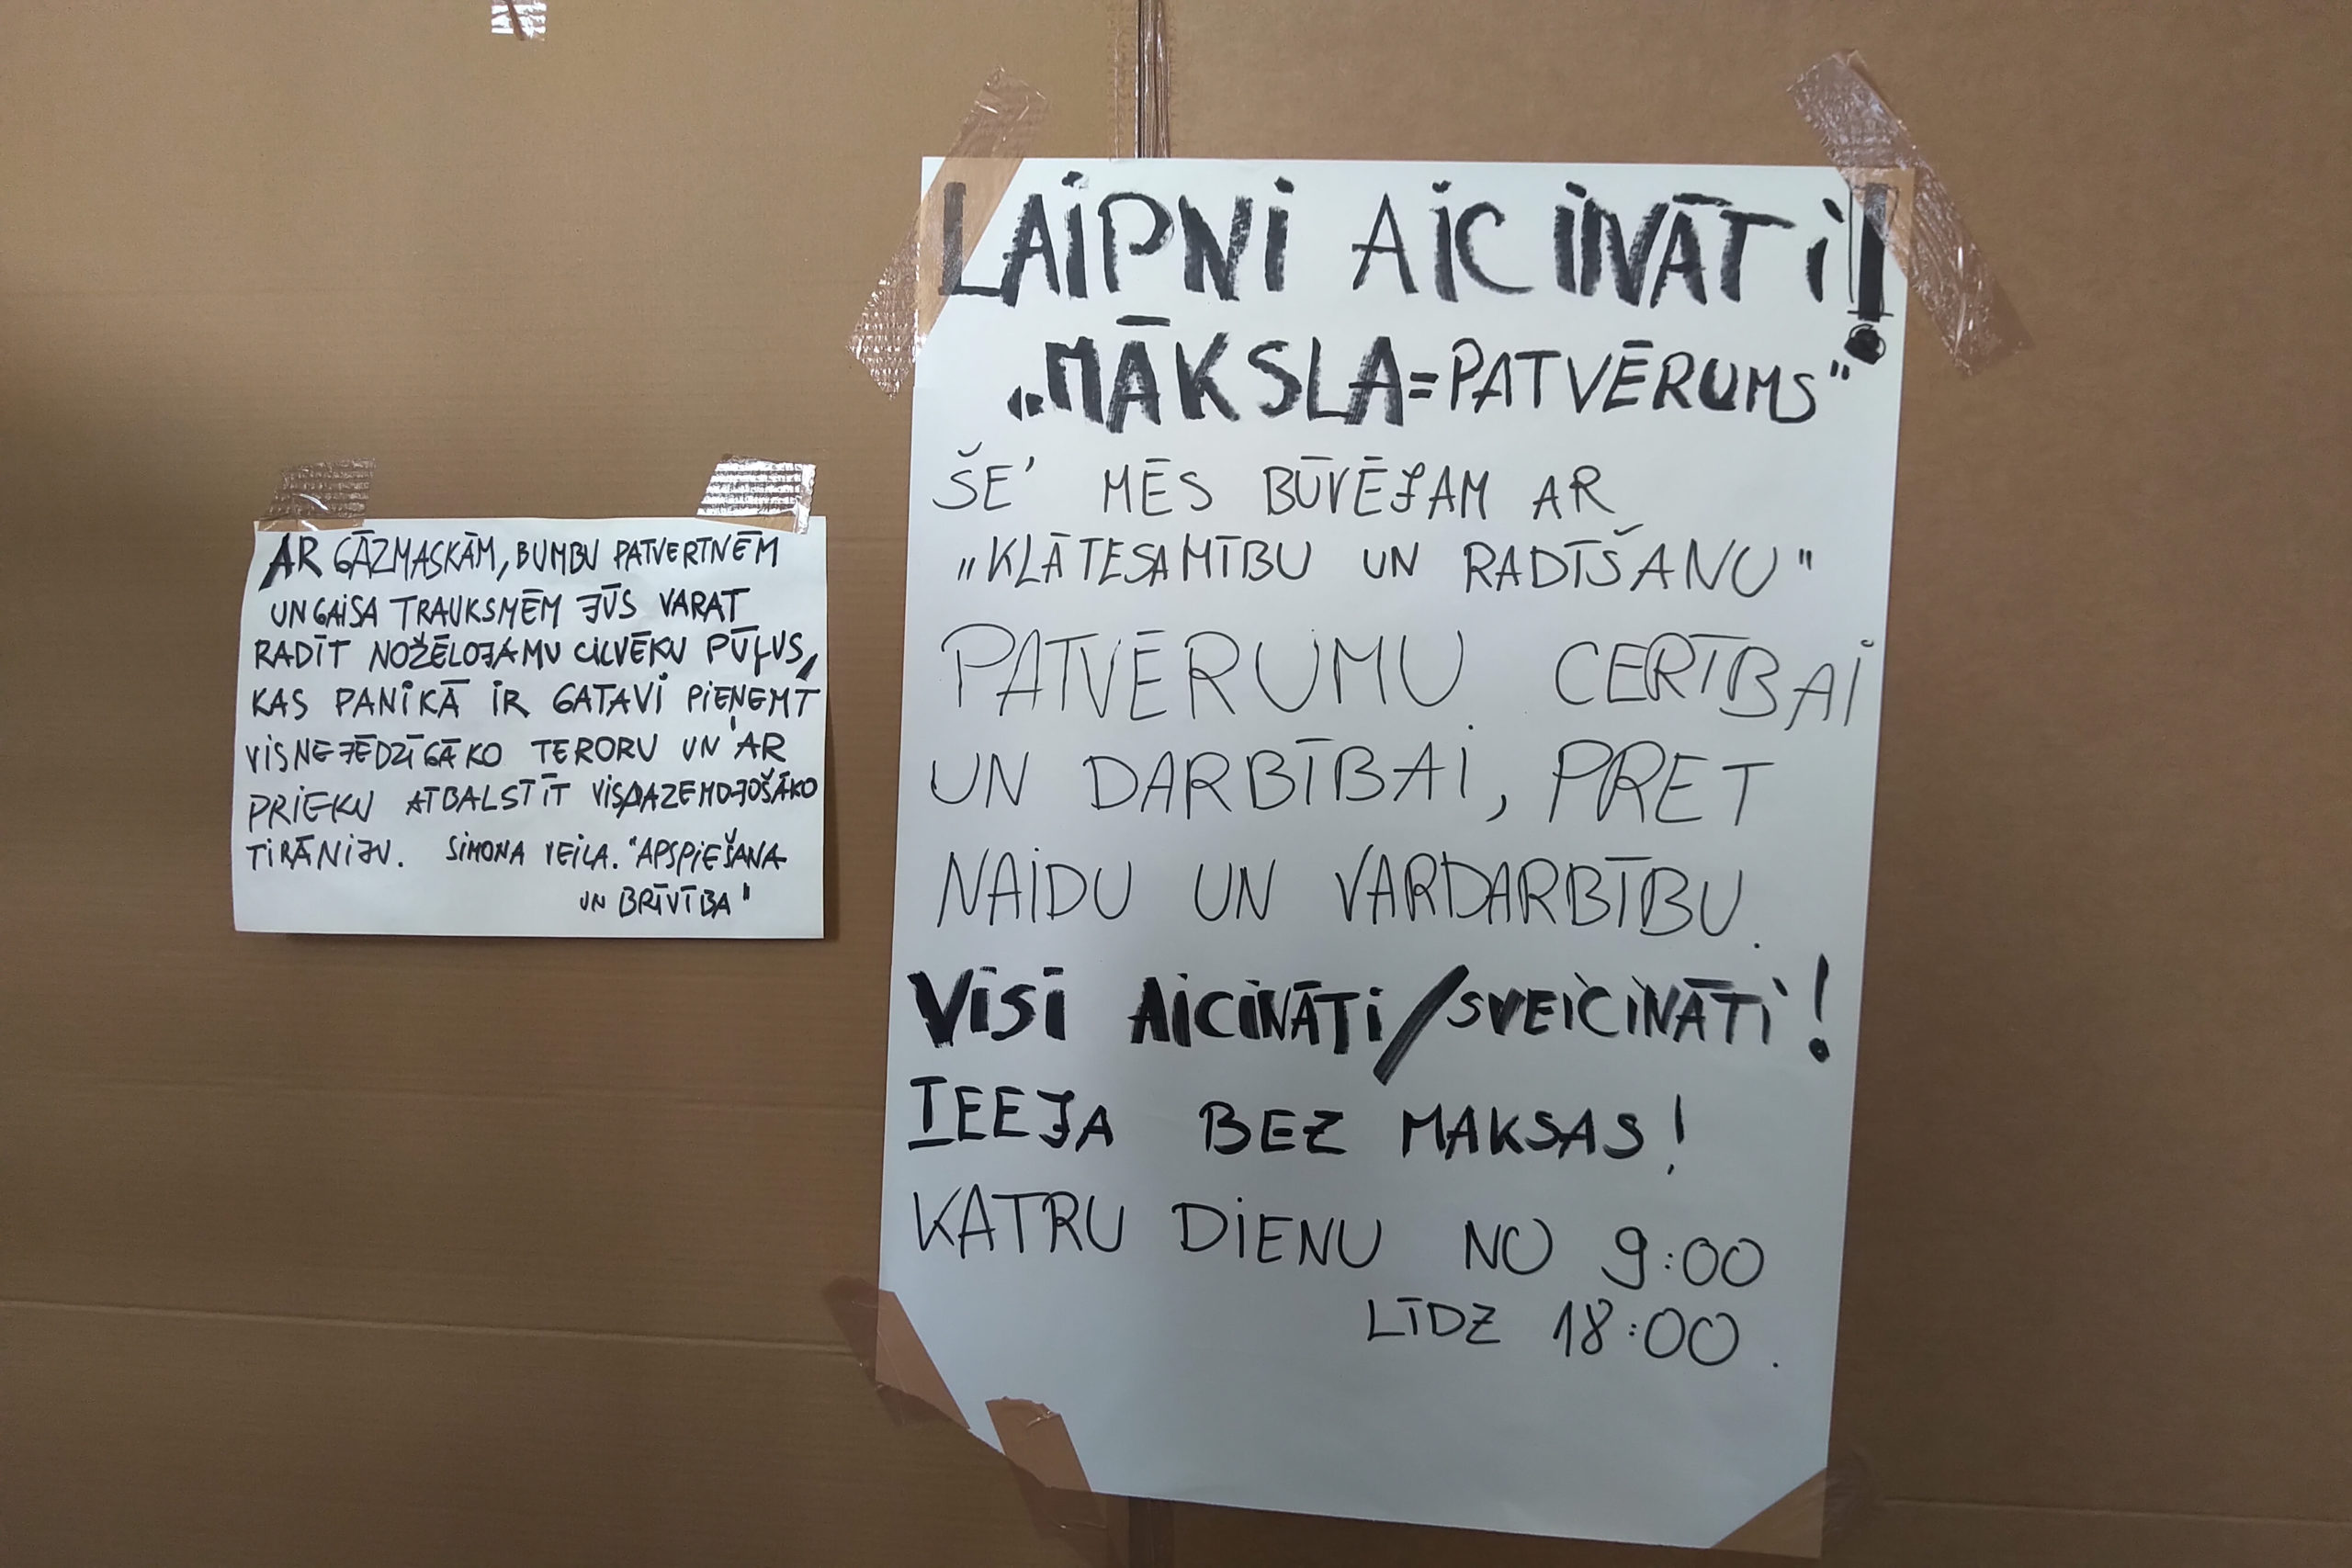 AR GĀZMASKĀM, BUMBU PATVERTNĒM
UN GAISA TRAUKSMĒM JŪS VARAT
RADĪT NOŽĒLOJAMU CILVĒKU PŪĻUS,
KAS PANIKĀ IR GATAVI PIEŅEMT
VISNEJĒDZĪGĀKO TERORU UN AR
PRIEKU ATBALSTĪT VISPAZEMOJOŠĀKO
TIRĀNIJU. SIMONA VEILA. "APSPIEŠANA
UN BRĪVĪBA"
LAIPNI AICINĀTI!
„MĀKSLA=PATVĒRUMS"
ŠE' MĒS BŪVĒJAM AR
„KLĀTESAMĪBU UN RADĪŠANU"
PATVĒRUMU CERĪBAI
UN DARBĪBAI, PRET
NAIDU UN VARDARBĪBU.
VISI AICINĀTI/SVEICINĀTI!
IEEJA BEZ MAKSAS!
KATRU DIENU NO 9:00
LĪDZ 18:00.